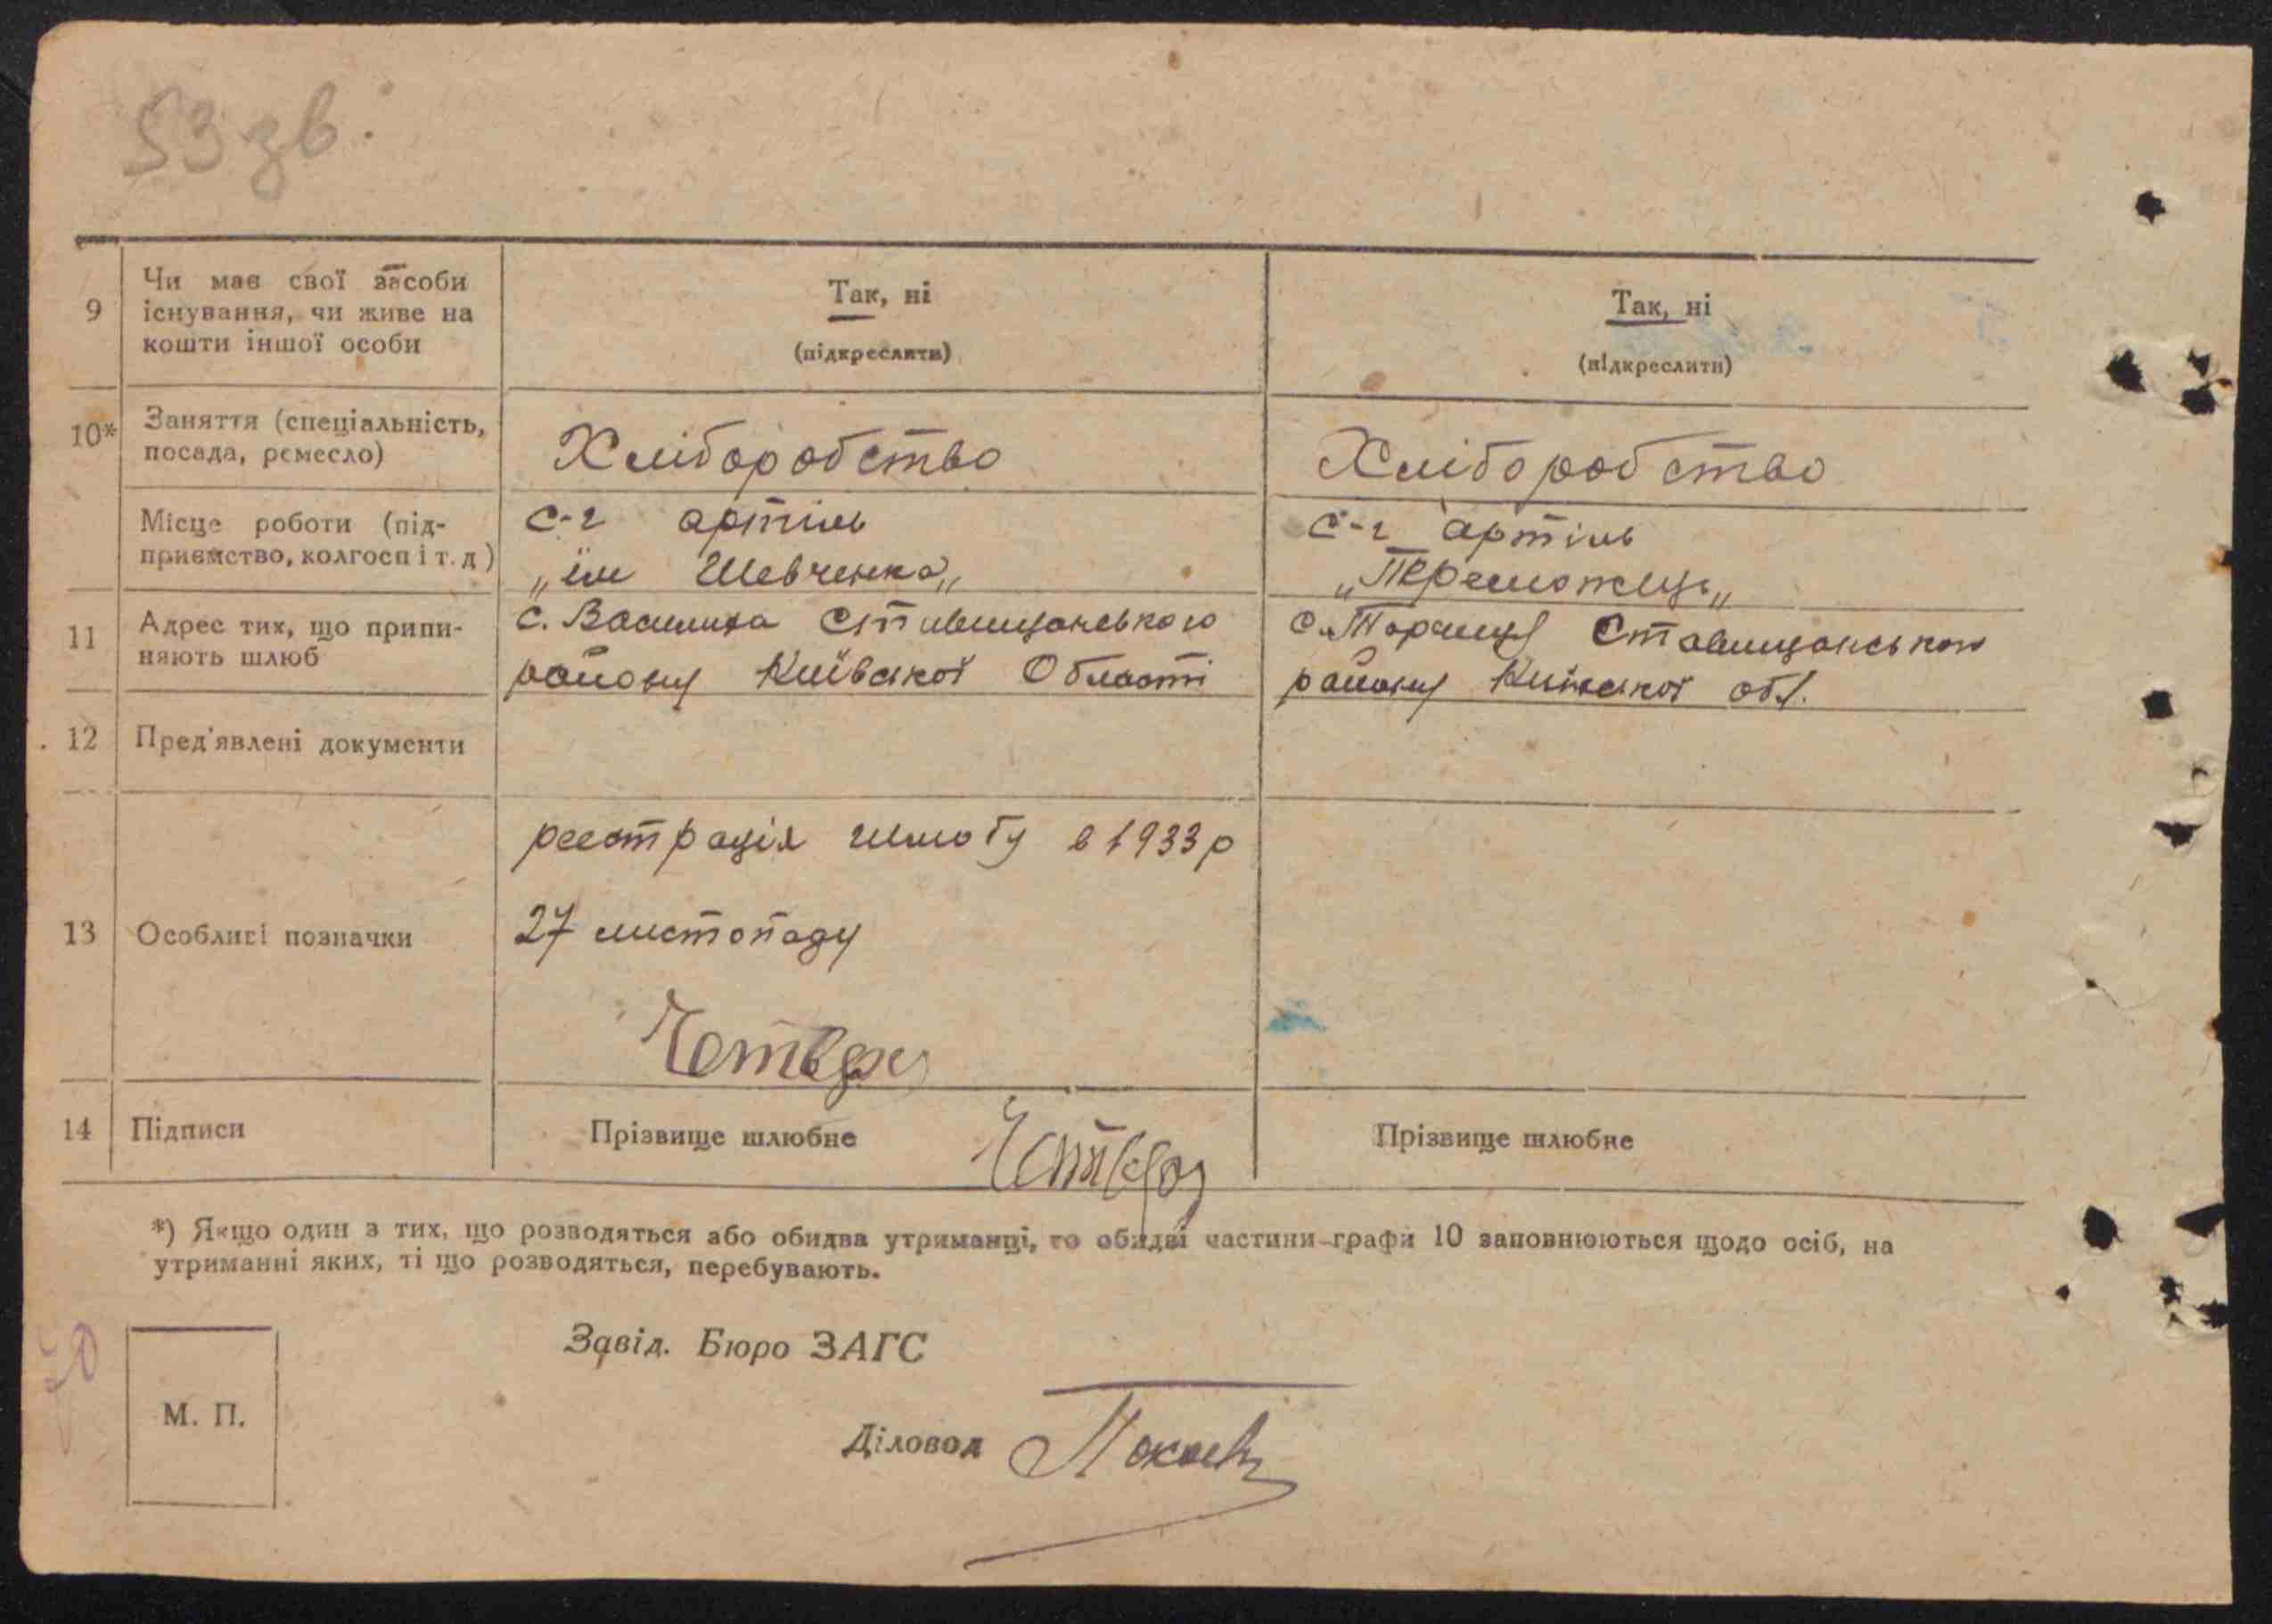 53 зв.
9
Чи має свої засоби
існування, чи живе на
кошти іншої особи
Так, ні
(підкреслити)
Так, ні
(підкреслити)
10*
Заняття (спеціальність,
посада, ремесло)
Хліборобство
Хліборобство
Місце роботи (під-
приємство, колгосп і т. д)
с-г артіль
„ім Шевченка„
с-г артіль
„Переможець„
11
Адрес тих, що припи-
няють шлюб
с. Василиха Ставищанського
району Київської Області
с. Ставищанського
району Київської обл.
12
Пред'явлені документи
13
Особливі позначки
реєстрація шлюбу в 1933 р
27 листопаду
14
Підписи
Прізвище шлюбне
Прізвище шлюбне
*) Якщо один з тих, що розводяться або обидва утриманці, то обидві частини графи 10 заповнюються щодо осіб, на
утриманні яких, ті що розводяться, перебувають.
70
М. П.
Завід. Бюро ЗАГС
Діловод